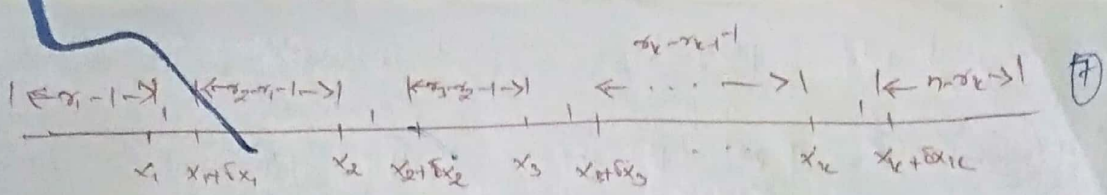 r_k-r_{k-1}-1
|←r_1-1→| |←r_2-r_1-1→| |←r_3-r_2-1→| ← ... →| |←n-r_k→| ⑦
x_1 x_1+δx_1 x_2 x_2+δx_2 x_3 x_3+δx_3 ... x_k x_k+δx_k